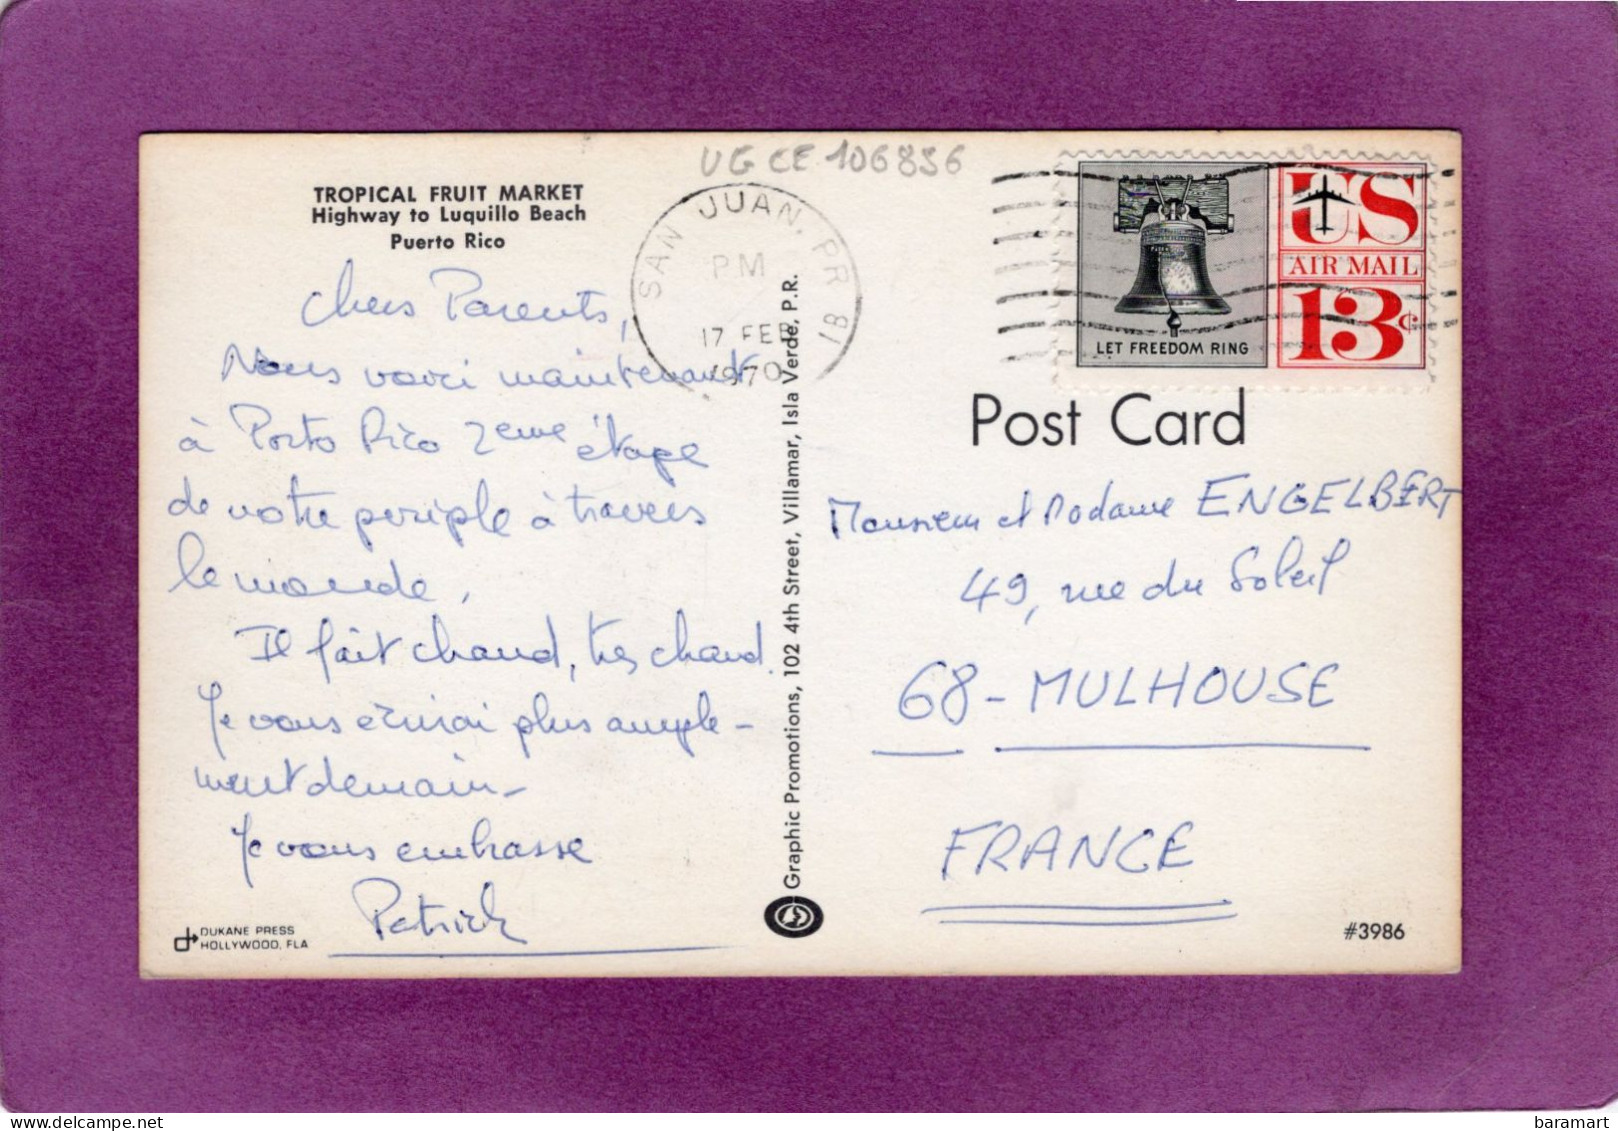 UG CE 106856
TROPICAL FRUIT MARKET
Highway to Luquillo Beach
Puerto Rico
SAN JUAN, PR 81
PM
17 FEB
1970
US
AIR MAIL
13c
LET FREEDOM RING
Post Card
Chers Parents,
Nous voici maintenant
à Porto Rico 2eme étape
de notre periple à travers
le monde.
Il fait chaud, tres chaud.
Je vous écrirai plus ample-
ment demain -
Je vous embrasse
Patrick
Graphic Promotions, 102 4th Street, Villamar, Isla Verde, P.R.
Monsieur et Madame ENGELBERT
49, rue du Soleil
68 - MULHOUSE
FRANCE
DUKANE PRESS
HOLLYWOOD, FLA
#3986
baramart